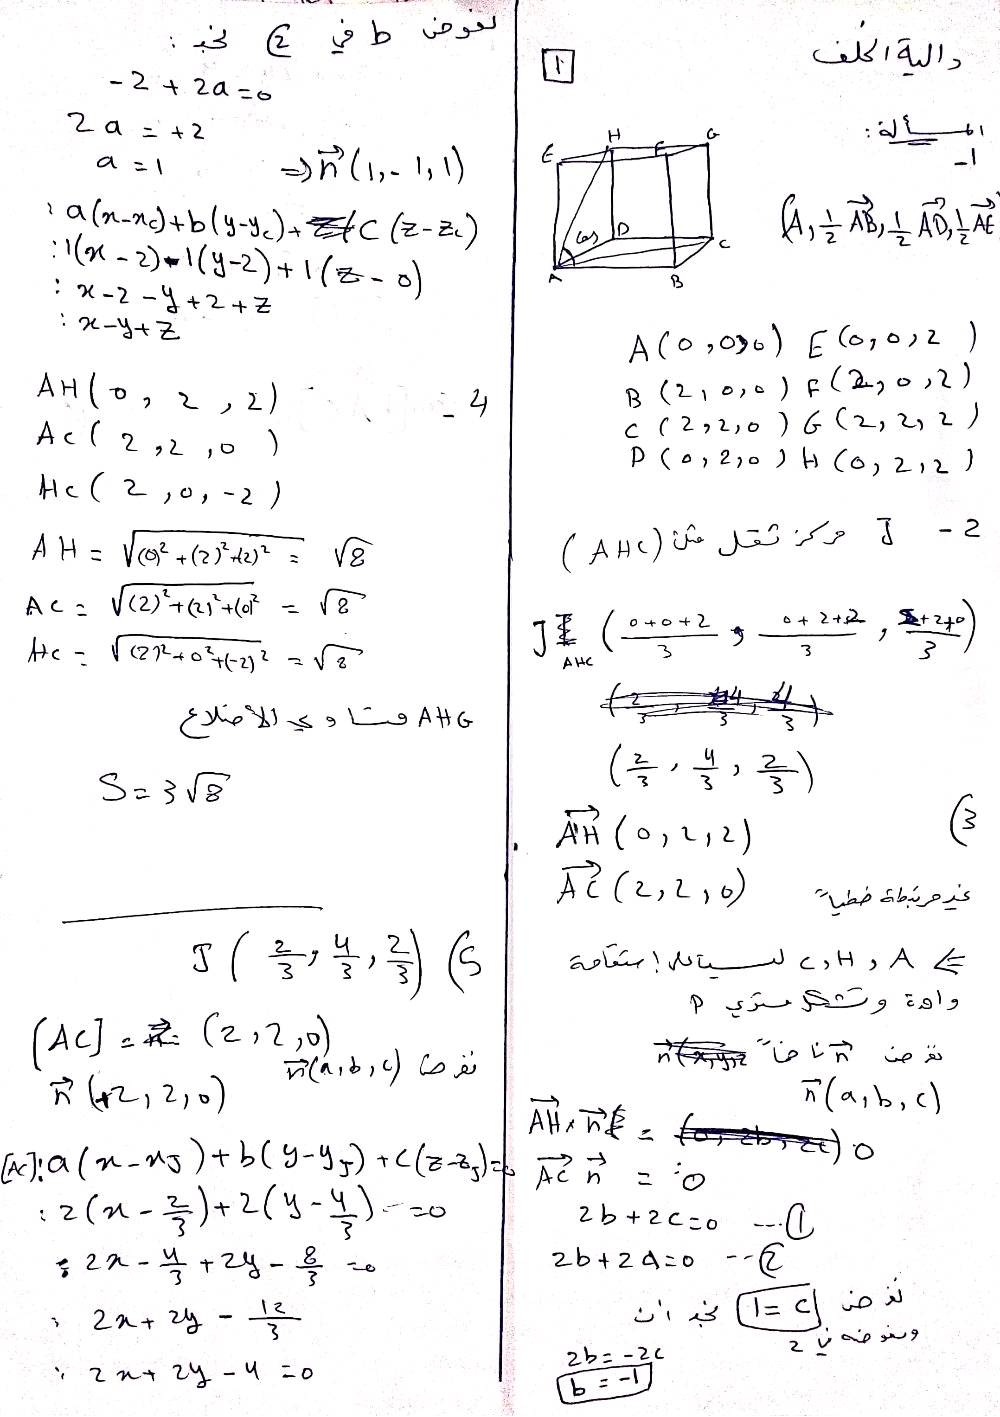 دالية الخلف
1
المسألة :
-1
(A, ½ AB, ½ AD, ½ AE
H G
E F
D C
A B
A (0,0,0) E (0,0,2)
B (2,0,0) F (2,0,2)
C (2,2,0) G (2,2,2)
D (0,2,0) H (0,2,2)
2 - J مركز ثقل مثلث (AHC)
J AHC ( (0+0+2)/3 , (0+2+2)/3 , (2+2+0)/3 )
(2/3 , 4/3 , 2/3)
3)
AH (0,2,2)
AC (2,2,0) غير مرتبطة خطياً
⇐ A , H , C ليست على استقامة
واحدة وتشكل مستوي P
نفرض n ناظماً
n (a,b,c)
AH . n = 0
AC n = 0
2b+2c=0 ---①
2b+2a=0 ---②
نفرض 1=c نجد أن
ونعوضه في 2
2b=-2c
b=-1
نعوض b في ② نجد :
-2+2a=0
2a=+2
a=1 ⇒ n (1,-1,1)
: a(x-xc)+b(y-yc)+c(z-zc)
: 1(x-2)-1(y-2)+1(z-0)
: x-2-y+2+z
: x-y+z
AH (0,2,2) - 4
AC (2,2,0)
HC (2,0,-2)
AH = √(0)²+(2)²+(2)² = √8
AC = √(2)²+(2)²+(0)² = √8
HC = √(2)²+0²+(-2)² = √8
AHG متساوي الأضلاع
S=3√8
J (2/3 , 4/3 , 2/3) (5
[AC] = (2,2,0)
نفرض n(a,b,c)
n (+2,2,0)
[AC]: a(x-xJ)+b(y-yJ)+c(z-zJ)=0
: 2(x-2/3)+2(y-4/3) =0
: 2x-4/3+2y-8/3 =0
: 2x+2y-12/3
: 2x+2y-4=0